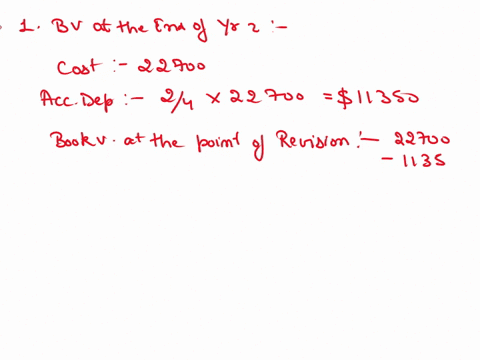 1. BV at the End of Yr 2 :-
Cost :- 22700
Acc. Dep :- 2/4 x 22700 = $11350
Book v. at the point of Revision :- 22700
- 1135